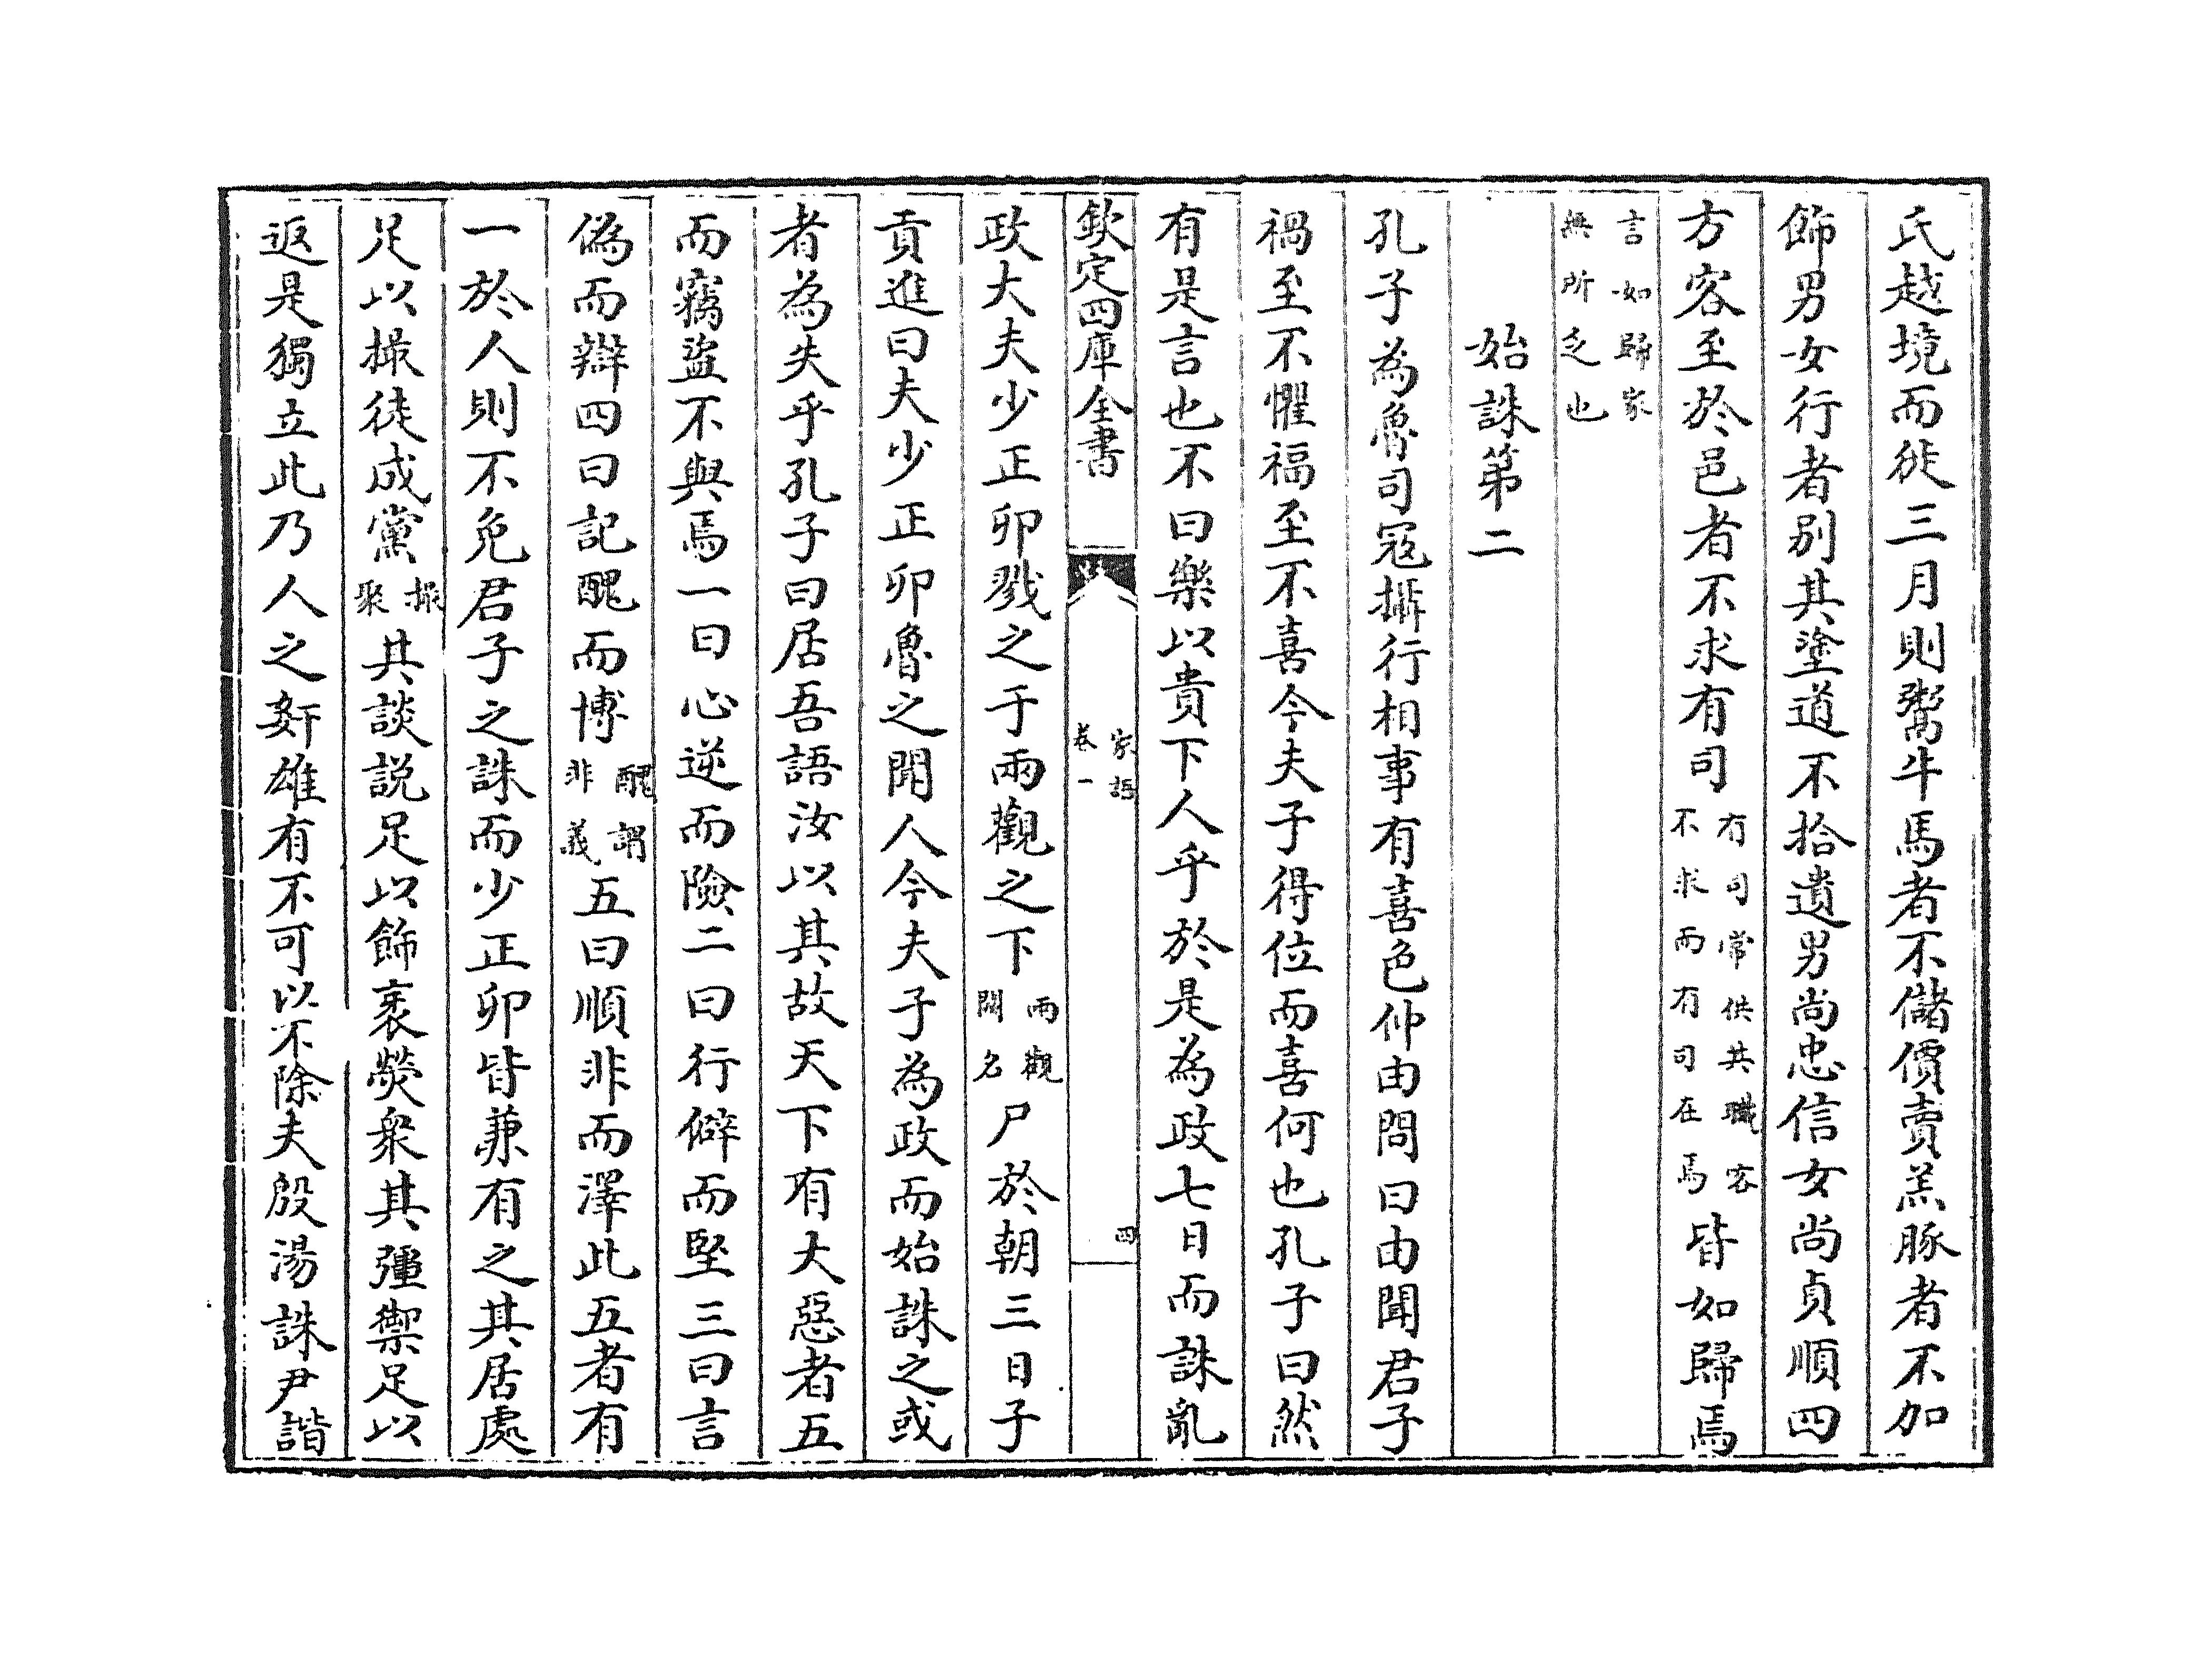 氏越境而徙三月則鬻牛馬者不儲價賣羔豚者不加
飾男女行者别其塗道不拾遺男尚忠信女尚貞順四
方客至於邑者不求有司有司常供其職客不求而有司在焉皆如歸焉
言如歸家無所乏也
始誅第二
孔子為魯司寇攝行相事有喜色仲由問曰由聞君子
禍至不懼福至不喜今夫子得位而喜何也孔子曰然
有是言也不曰樂以貴下人乎於是為政七日而誅亂
欽定四庫全書
家語
卷一
四
政大夫少正卯戮之于兩觀之下兩觀闕名尸於朝三日子
貢進曰夫少正卯魯之聞人今夫子為政而始誅之或
者為失乎孔子曰居吾語汝以其故天下有大惡者五
而竊盜不與焉一曰心逆而險二曰行僻而堅三曰言
偽而辯四曰記醜而博醜謂非義五曰順非而澤此五者有
一於人則不免君子之誅而少正卯皆兼有之其居處
足以撮徒成黨撮聚其談説足以飾袠熒衆其彊禦足以
返是獨立此乃人之姧雄有不可以不除夫殷湯誅尹諧